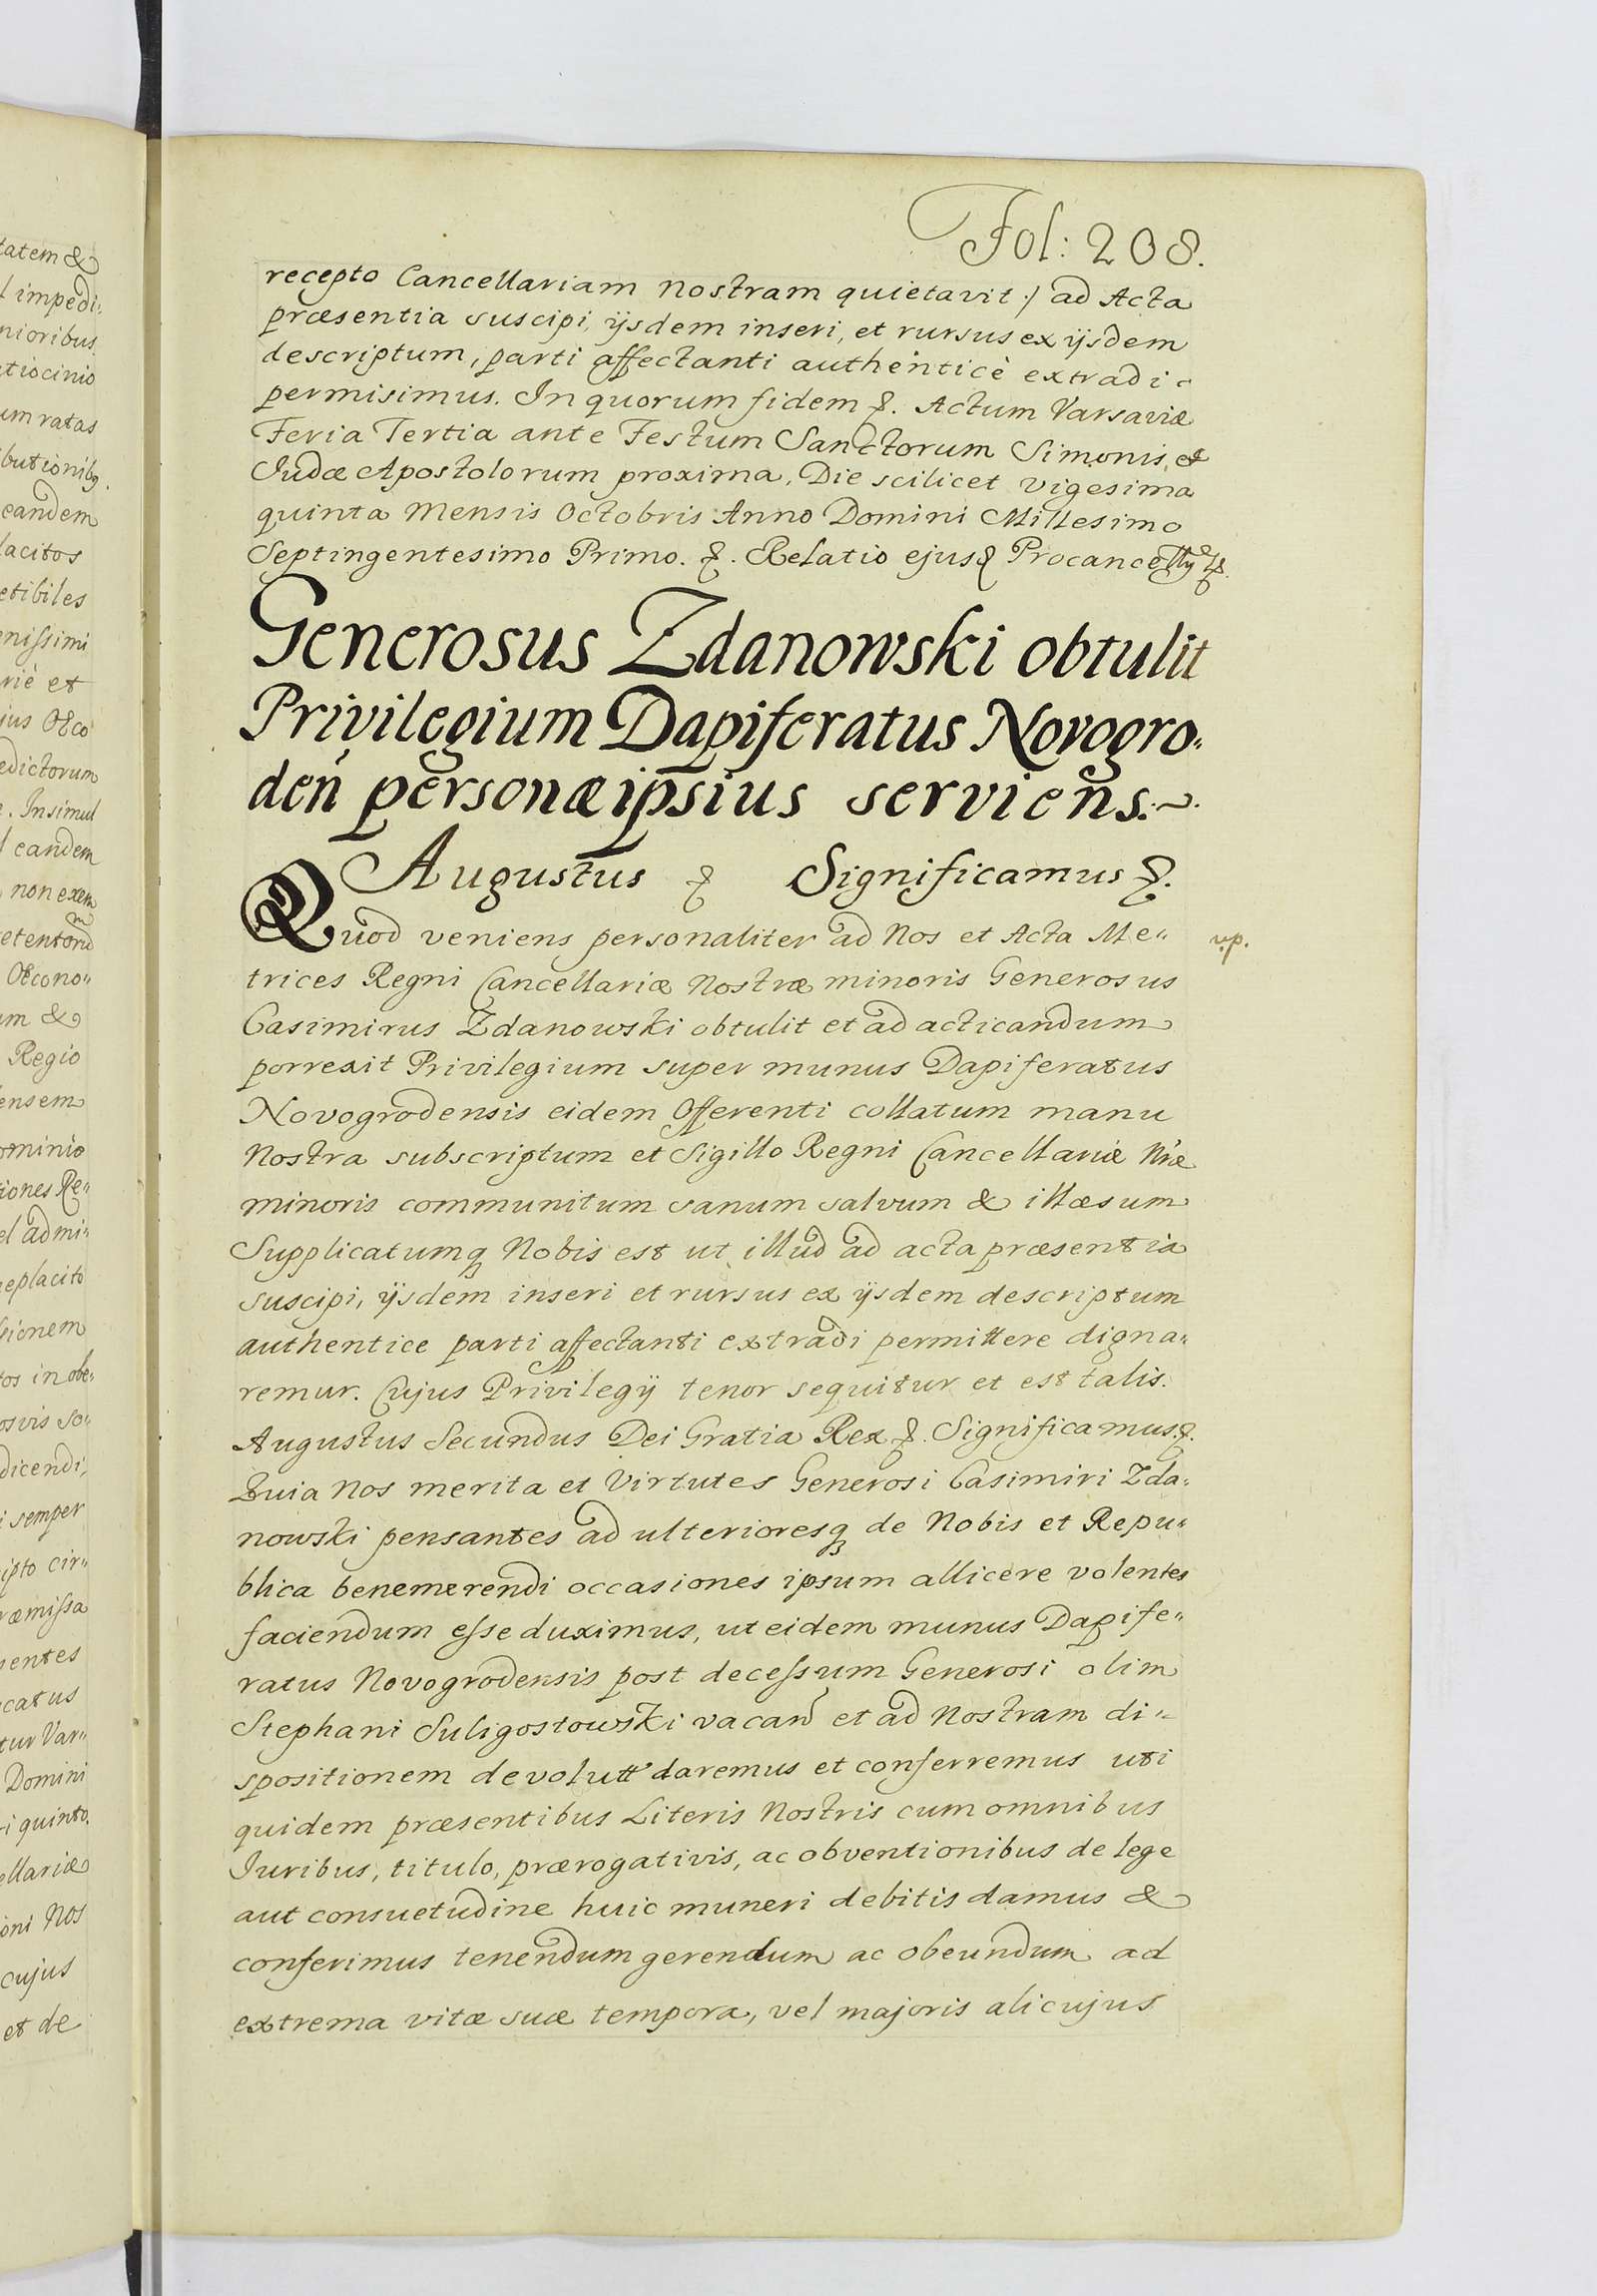 Fol: 208.
recepto Cancellariam nostram quietavit :/ ad Acta
præsentia suscipi, ijsdem inseri, et rursus ex ijsdem
descriptum, parti affectanti authenticè extradi
permisimus. In quorum fidem &. Actum Varsaviæ
Feria Tertia ante Festum Sanctorum Simonis, et
Judæ Apostolorum proxima, Die scilicet vigesima
quinta Mensis Octobris Anno Domini Millesimo
Septingentesimo Primo. &. Relatio ejusd Procancellrÿ &.
Generosus Zdanowski obtulit
Privilegium Dapiferatus Novogro„
deń personæ ipsius serviens.~.
Augustus & Significamus &.
Quod veniens personaliter ad Nos et Acta Me„
v.p.
trices Regni Cancellariæ Nostræ minoris Generosus
Casimirus Zdanowski obtulit et ad acticandum
porrexit Privilegium super munus Dapiferatus
Novogrodensis eidem Offerenti collatum manu
Nostra subscriptum et Sigillo Regni Cancellariæ Nræ
minoris communitum sanum salvum & illæsum
Supplicatumq Nobis est ut illud ad acta præsentia
suscipi, ijsdem inseri et rursus ex ijsdem descriptum
authentice parti affectanti extradi permittere digna„
remur. Cujus Privilegij tenor sequitur et est talis.
Augustus Secundus Dei Gratia Rex &. Significamus &.
Quia Nos merita et Virtutes Generosi Casimiri Zda„
nowski pensantes ad ulterioresq de Nobis et Repu„
blica benemerendi occasiones ipsum allicere volentes
faciendum esse duximus, ut eidem munus Dapife„
ratus Novogrodensis post decessum Generosi olim
Stephani Suligostowski vacań et ad Nostram di„
spositionem devolutt daremus et conferremus uti
quidem præsentibus Literis Nostris cum omnibus
Iuribus, titulo, prærogativis, ac obventionibus de lege
aut consuetudine huic muneri debitis damus &
conferimus tenendum gerendum ac obeundum ad
extrema vitæ suæ tempora, vel majoris alicujus